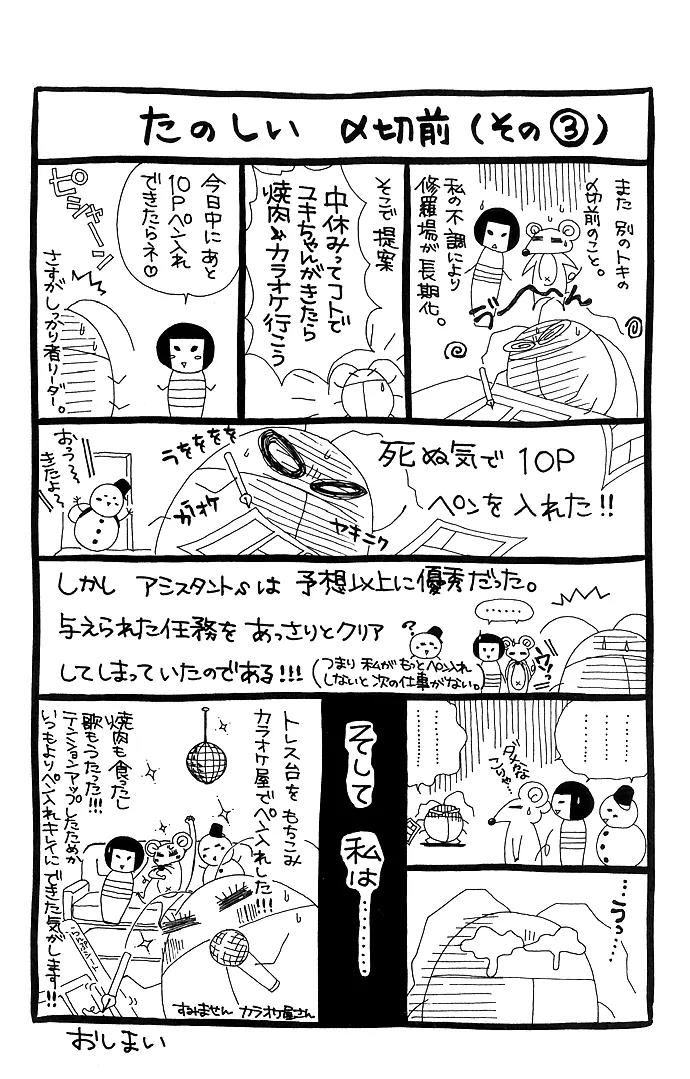 たのしい 〆切前(その③)
また 別のトキの
〆切前のこと。
私の不調により
修羅場が長期化。
デ〜〜ん
そこで 提案
中休みってコトで
ユキちゃんがきたら
焼肉&カラオケ行こう
今日中にあと
10Pペン入れ
できたらネ♡
ピシャーン
さすがしっかり者リーダー。
死ぬ気で 10P
ペンを 入れた!!
うをををを
カラオケ
ヤキニク
おう〜〜
きたよ〜
しかし アシスタントsは 予想以上に優秀だった。
与えられた任務を あっさりとクリア
してしまっていたのである!!!(つまり 私がもっとペン入れ
しないと次の仕事がない。)
?
……
ウッ…
………
………
ダメだな
こりゃ…
…うっ…
そして 私は………
トレス台を もちこみ
カラオケ屋でペン入れした!!
焼肉も食ったし
歌もうたった!!!
テンションアップしたためか
いつもよりペン入れキレイにできた気がします!!!
すみません カラオケ屋さん
おしまい